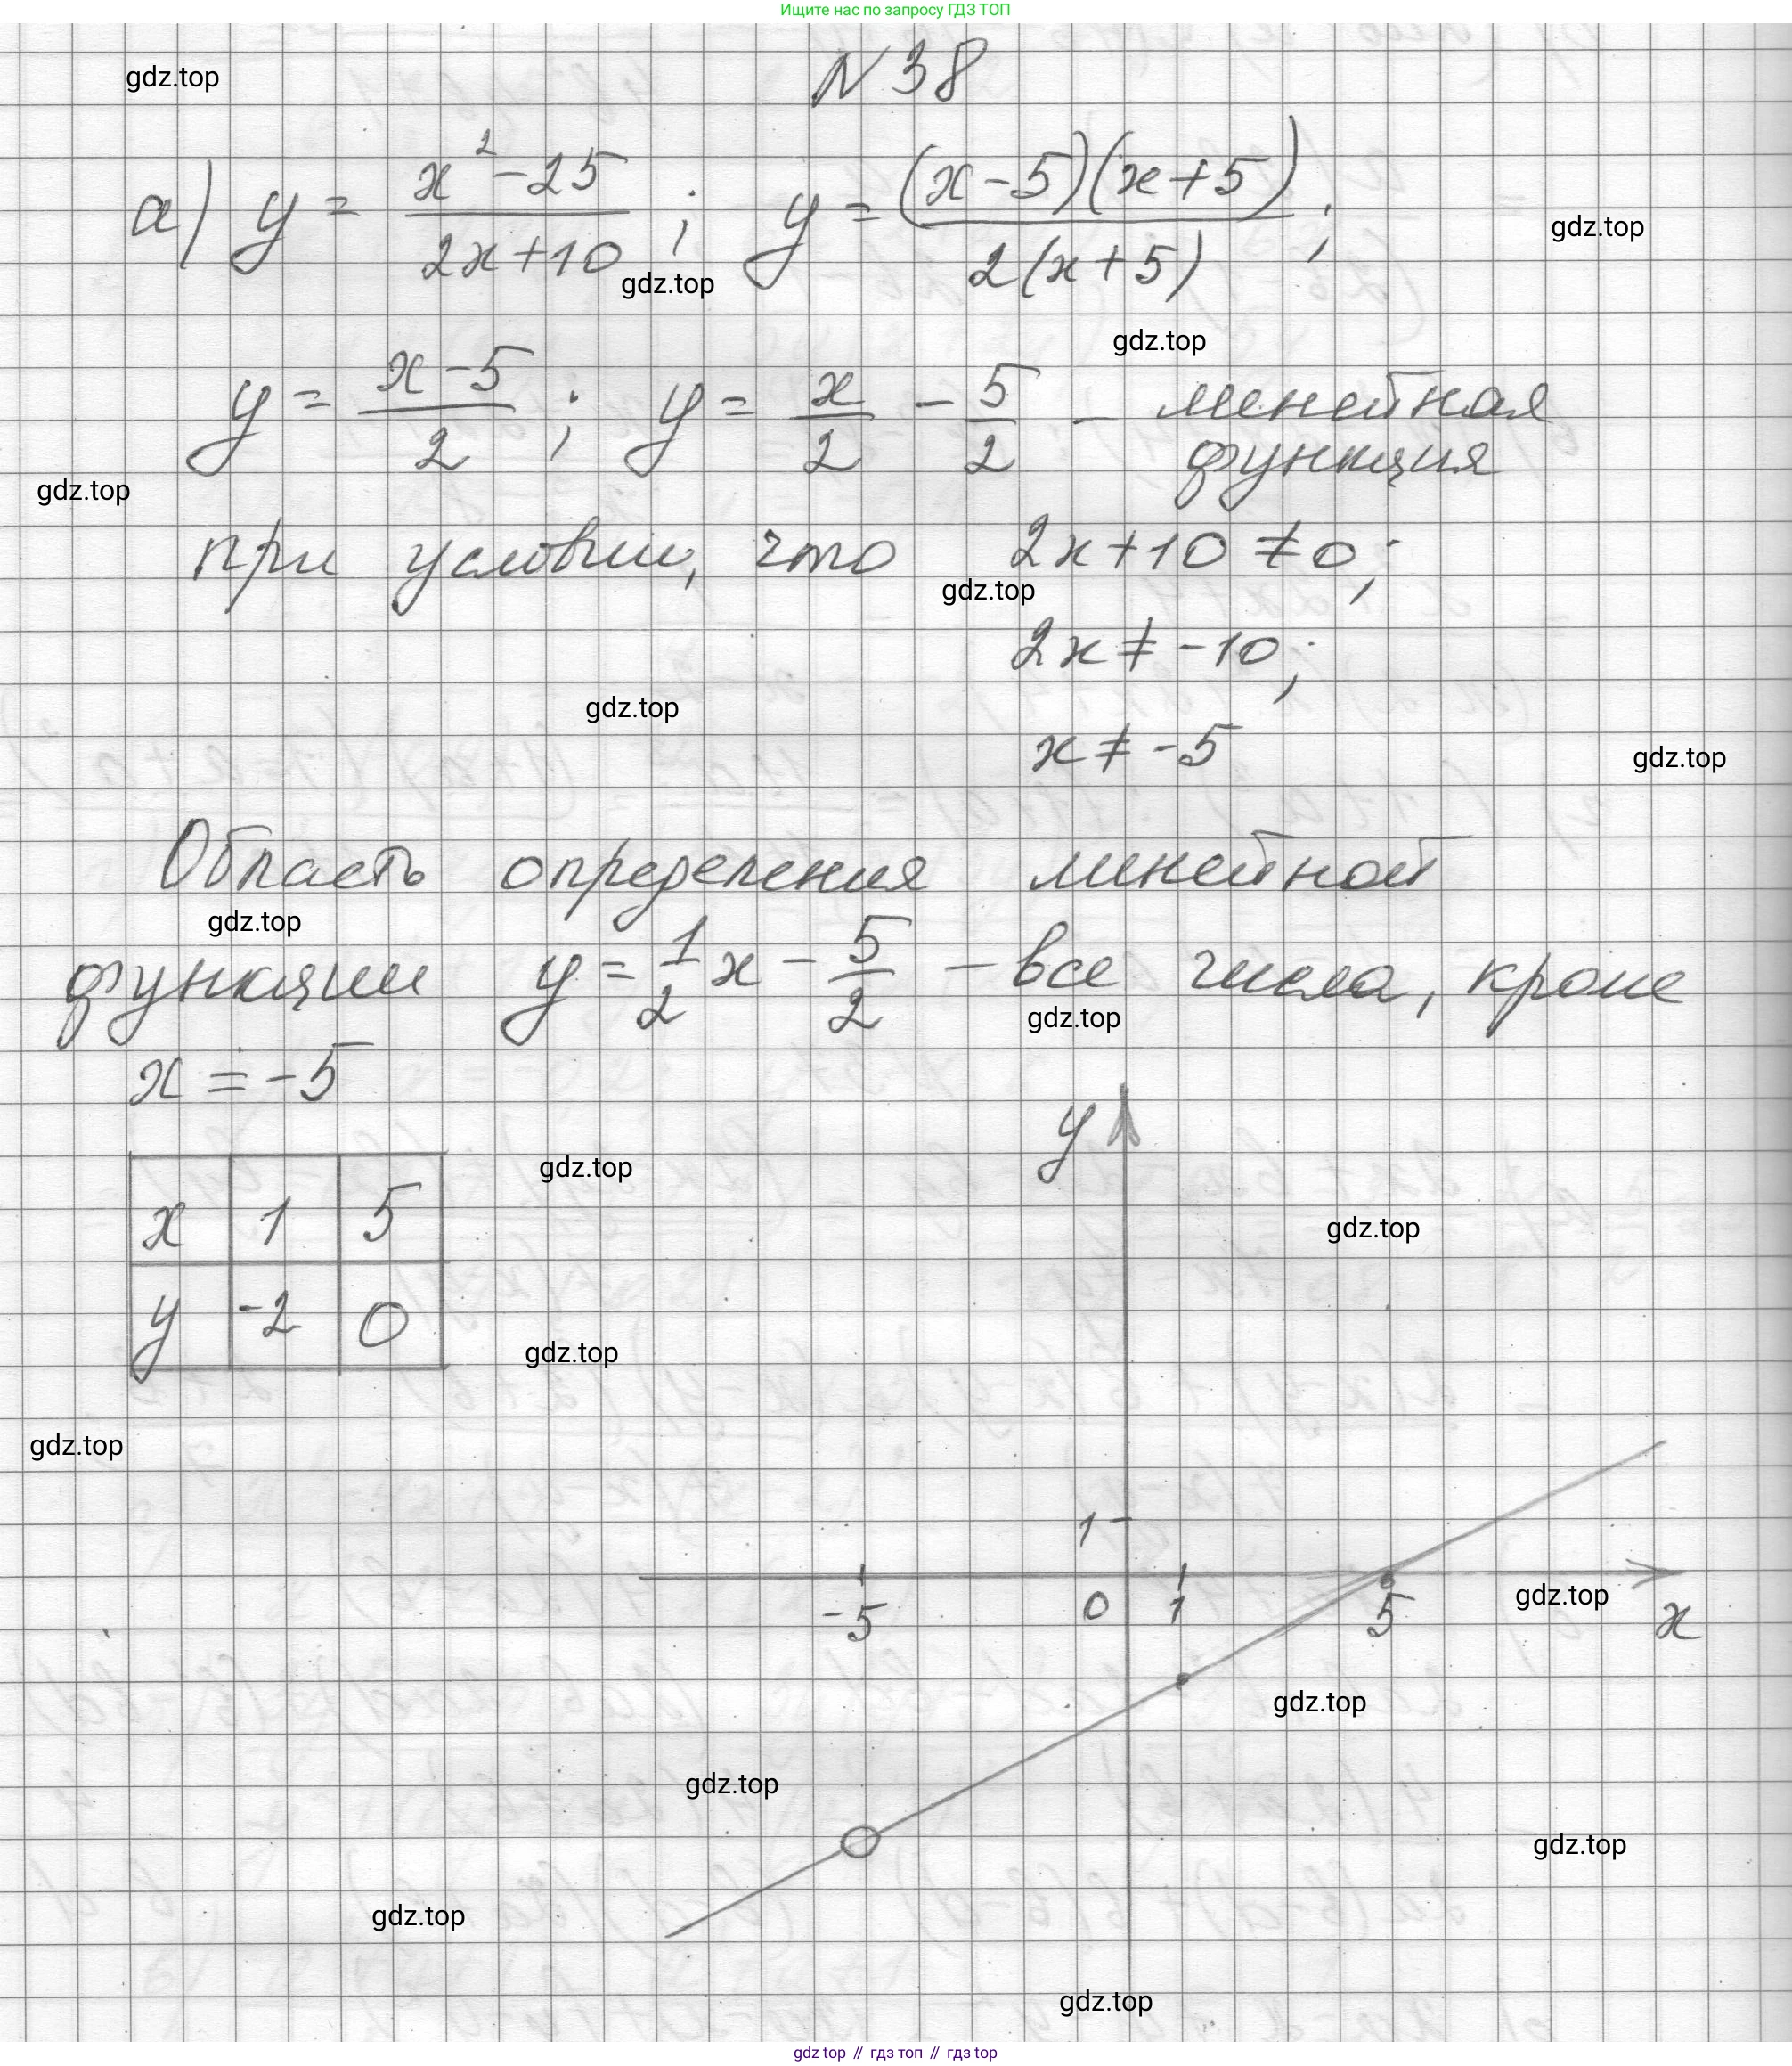 Ищите нас по запросу ГДЗ ТОП
N 38
gdz.top
а) y = (x² - 25)/(2x + 10) ; y = ((x - 5)(x + 5))/(2(x + 5)) ;
gdz.top
gdz.top
gdz.top
y = (x - 5)/2 ; y = x/2 - 5/2 - линейная
функция
gdz.top
при условии, что 2x + 10 ≠ 0;
gdz.top
2x ≠ -10;
gdz.top
x ≠ -5
gdz.top
Область определения линейной
gdz.top
функции y = 1/2 x - 5/2 - все числа, кроме
gdz.top
x = -5
y
gdz.top
x 1 5
gdz.top
y -2 0
gdz.top
gdz.top
1
-5 0 1 5 x
gdz.top
gdz.top
gdz.top
gdz.top
gdz.top
gdz.top
gdz top // гдз топ // гдз top